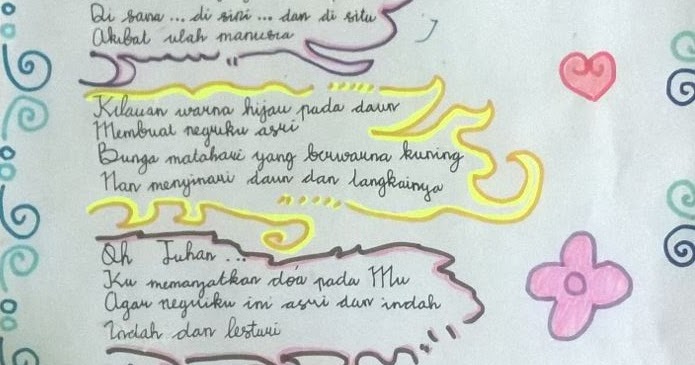 Di sana ... di sini ... dan di situ
Akibat ulah manusia
Kilauan warna hijau pada daun
Membuat negriku asri
Bunga matahari yang berwarna kuning
Nan menyinari daun dan langkainya
Oh Tuhan ...
Ku memanjatkan do'a pada Mu
Agar negriku ini asri dan indah
Indah dan lestari